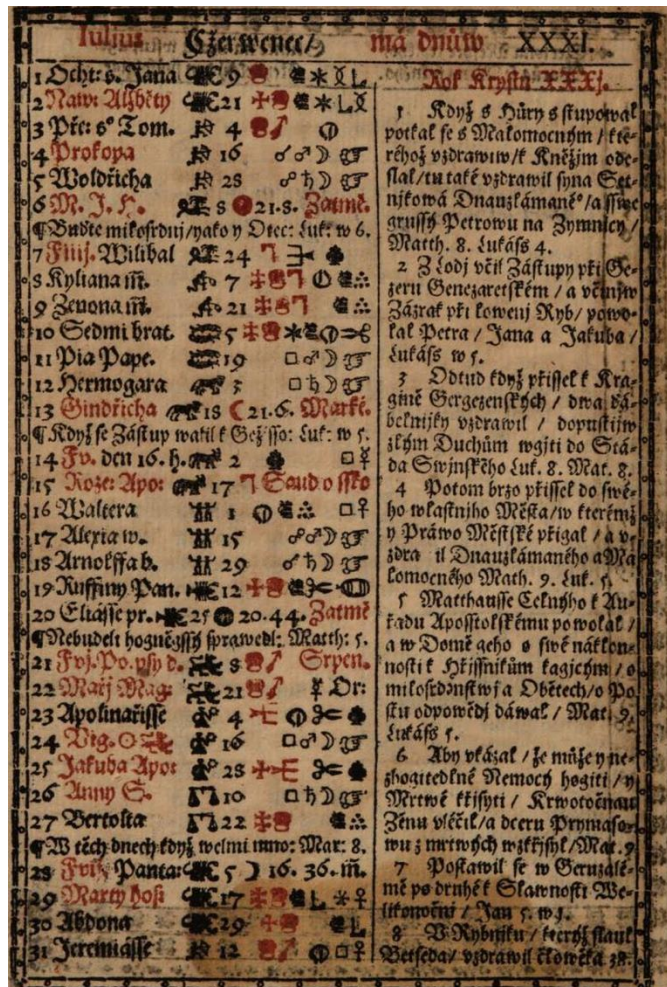 Iulius Czerwenec/ má dnůw XXXI.
1 Ocht: s. Jana 9
2 Naw: Alžběty 21
3 Pře: sº Tom. 4
4 Prokopa 16
5 Woldřicha 28
6 M. J. H. 8 21.8. Zatmě.
¶ Buďte milosrdnj/yako y Otec: Luk: w 6.
7 Wilibal 24
8 Kyliana m̃. 7
9 Zenona m̃. 21
10 Sedmi brat. 5
11 Pia Pape. 19
12 Hermogara 3
13 Gindřicha 18 21.6. Markě.
¶ Když se Zástup walil k Gežisso: Luk: w 5.
14 Fv. den 16. h. 2
15 Roze: Apo: 17 Saud o
16 Waltera 1
17 Alexia w. 15
18 Arnolffa b. 29
19 Ruffiny Pan. 12
20 Eliásse pr. 25 20.44. Zatmě
¶ Nebudelt hogněgssý sprawedl: Matth: 5.
21 Po. psy d. 8 Srpen.
22 Mařj Mag: 21 Or:
23 Apolinářisse 4
24 Vig. 16
25 Jakuba Apo: 28
26 Anny S. 10
27 Bertolta 22
¶ W těch dnech když welmi mno: Mar: 8.
28 Panta: 5 16. 36. m̃.
29 Marty hosp 17
30 Abdona 29
31 Jeremiásse 12
Rok Krysta XXXj.
1 Když s Hůry sstupowal
potkal se s Malomocným / kte-
réhož vzdrawiw/k Kněžjm ode-
slal/tu také vzdrawil syna Set-
njkowá Dnauzlámaněº/a sswe-
grussý Petrowu na Zymnicy/
Matth. 8. Lukáss 4.
2 Z Lodj včil Zástupy při Ge-
zeru Genezaretském / a včiniw
Zázrak při lowenj Ryb/ powo-
lal Petra / Jana a Jakuba /
Lukáss w 5.
3 Odtud když přissel k Kra-
gině Gergezenských / dwa ďá-
belnjky vzdrawil / dopustiw
zlým Duchům wgjti do Stá-
da Swjnského Luk. 8. Mat. 8.
4 Potom brzo přissel do swé-
ho wlastnjho Města/w kterémž
y Práwo Městské přigal / a v-
zdra il Dnauzlámaného a Ma
lomocného Math. 9. Luk. 5.
5 Matthausse Celného k Au-
řadu Aposstolskému powolal /
a w Domě geho s swé náklon-
nosti k Hřjssnikům kagjcým / o
milosrdenstwj a Obětech/o Po
stu odpowědj dáwal / Mat. 9.
Lukáss 5.
6 Aby vkázal / že může y ne-
zhogitedlné Nemocy hogiti / y
Mrtwé křjsyti / Krwotočnau
Ženu vléčil/a dceru Prymaso-
wu z mrtwých wzkřjsyl/Mat. 9
7 Postawil se w Geruzalé-
mě po druhé k Slawnosti We-
likonočnj / Jan 5. w 1.
8 V Rybnjku / kterýž slaul
Betseda/ vzdrawil člowěka 38.